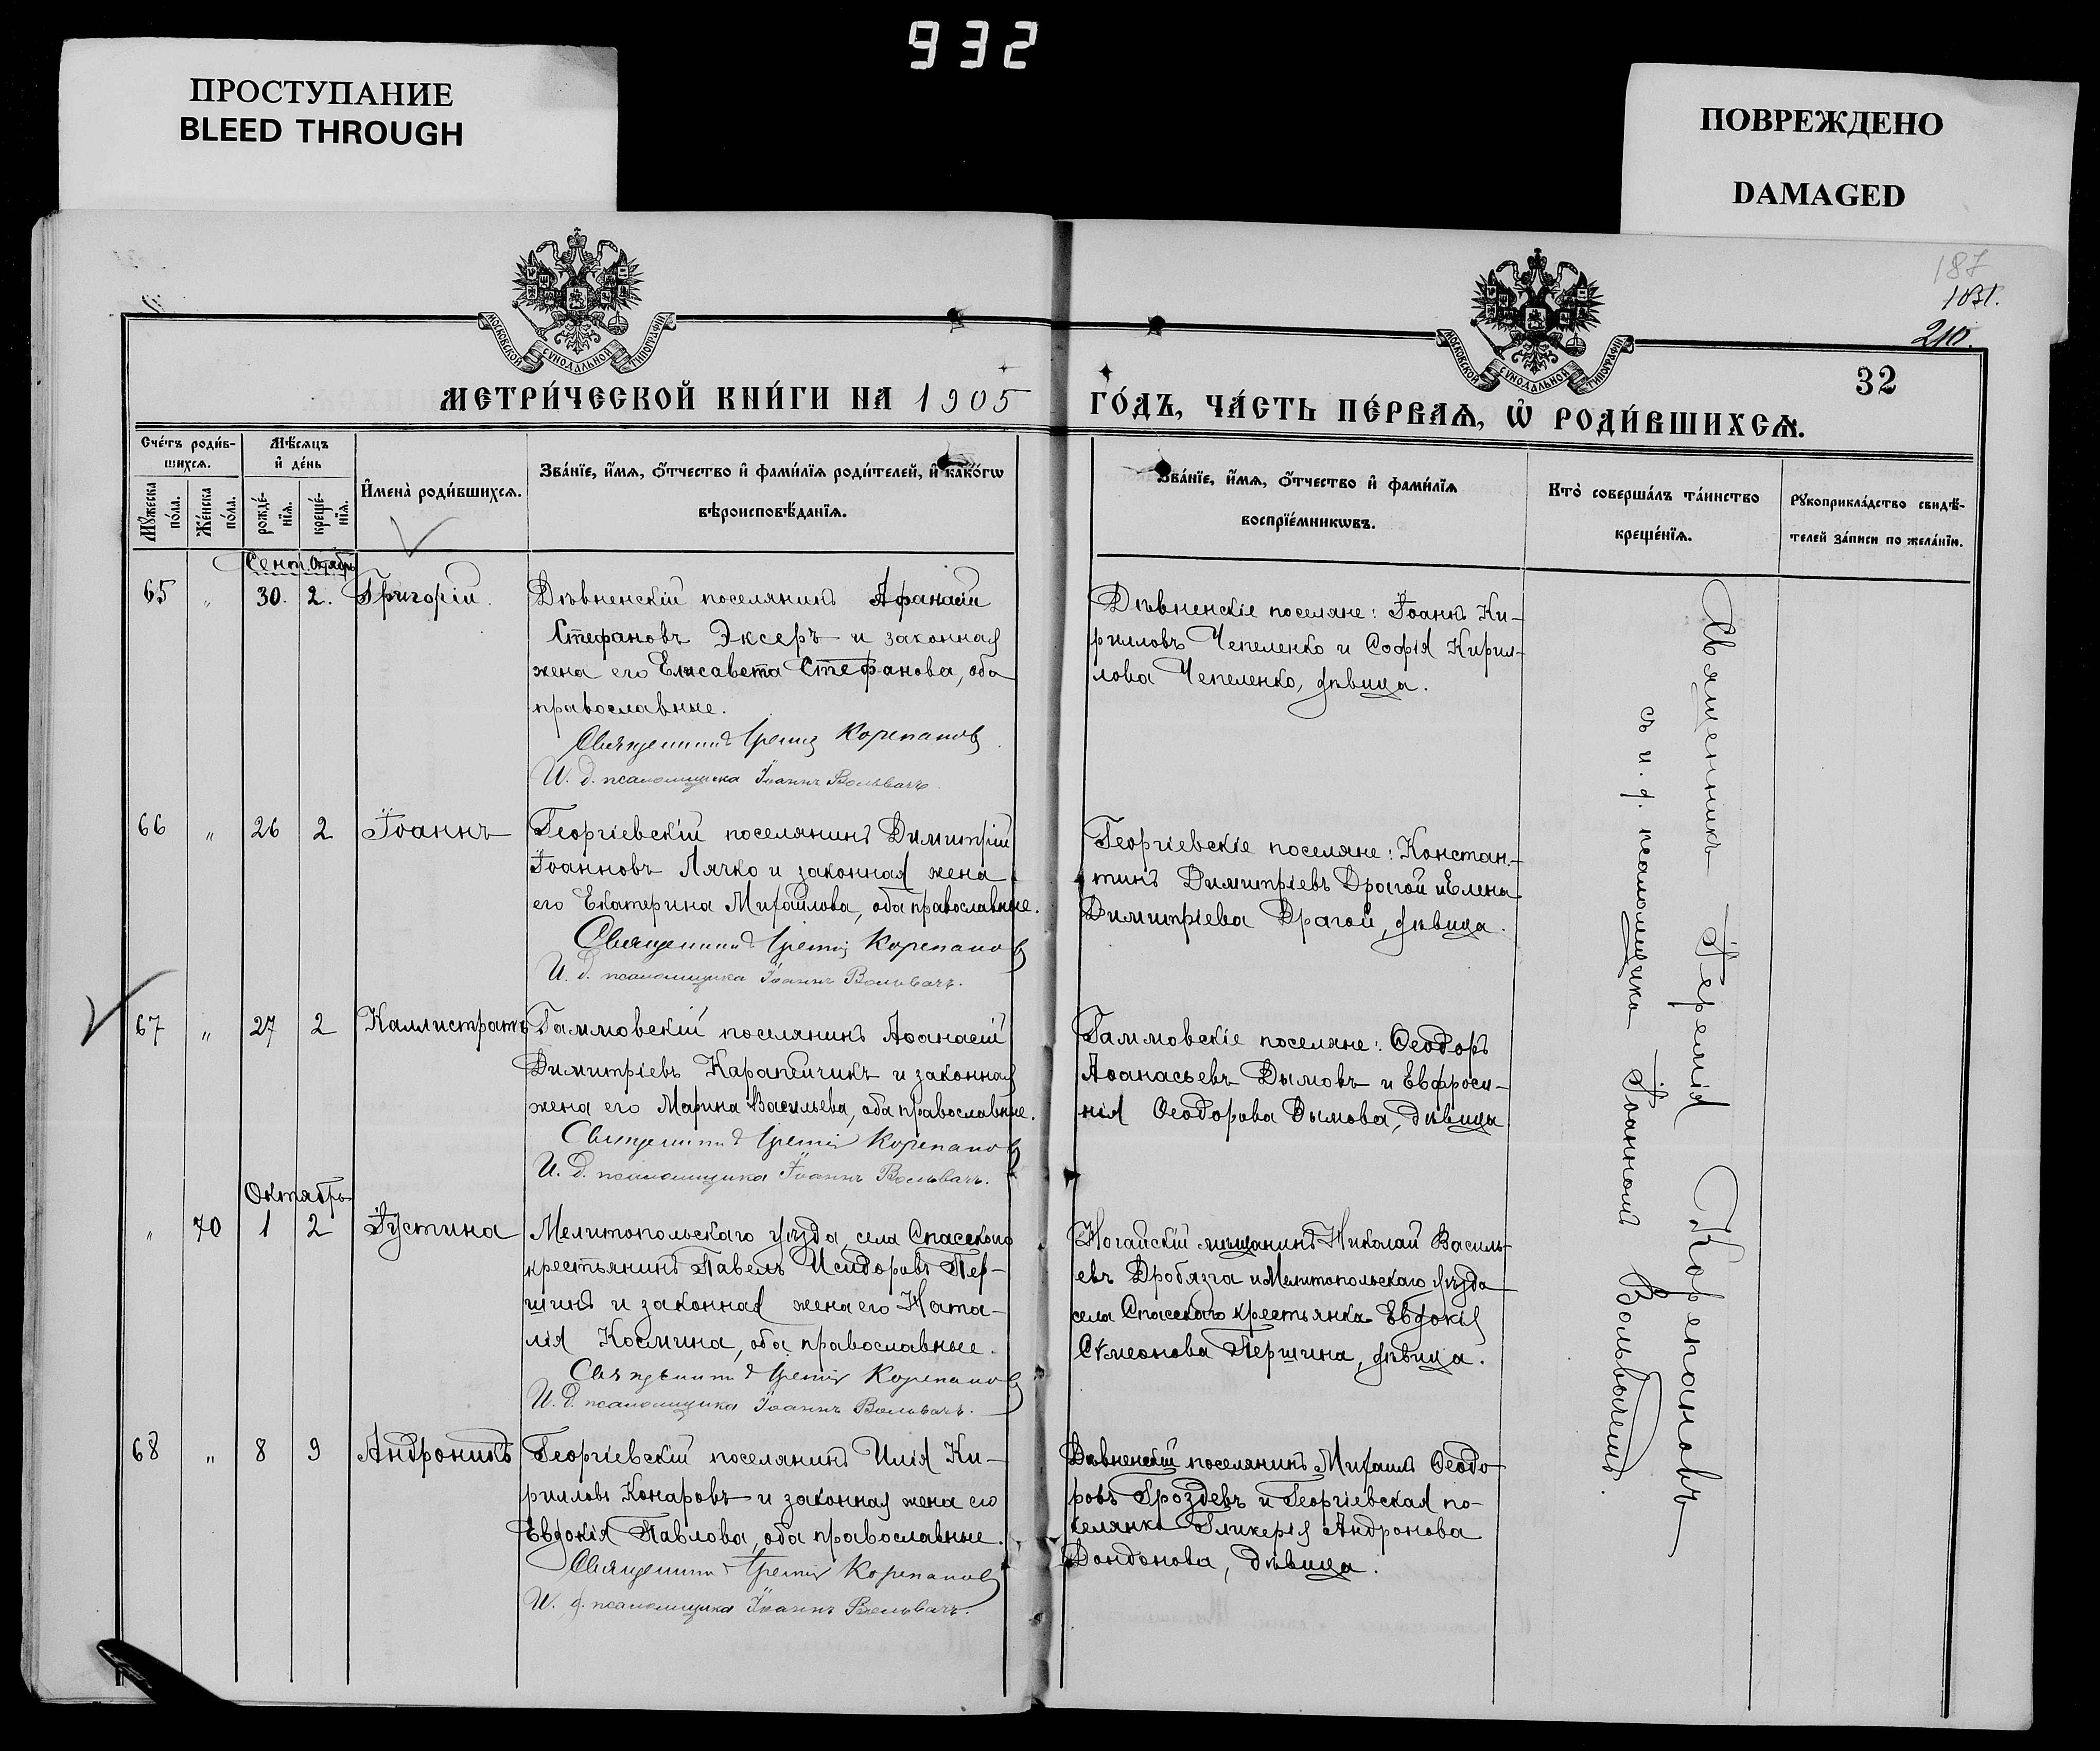 932
ПРОСТУПАНИЕ
BLEED THROUGH
ПОВРЕЖДЕНО
DAMAGED
187
1031.
210
32
МОСКОВСКОЙ СѴНОДАЛЬНОЙ ТИПОГРАФІИ
МОСКОВСКОЙ СѴНОДАЛЬНОЙ ТИПОГРАФІИ
МЕТРИ́ЧЕСКОЙ КНИ́ГИ НА 1905
ГО́ДЪ, ЧА́СТЬ ПЕ́РВАѦ, Ѽ РОДИ́ВШИХСѦ.
Сче́тъ роди́в-
шихсѧ.
Мꙋ́жеска
по́ла.
Же́нска
по́ла.
Мѣ́сѧцъ
и҆ де́нь
рожде́-
нїѧ.
креще́-
нїѧ.
И҆мена̀ роди́вшихсѧ.
Зва́нїе, и҆́мѧ, ѻ҆́тчество и҆ фами́лїѧ роди́телей, и҆ како́гѡ
вѣроисповѣ́данїѧ.
Зва́нїе, и҆́мѧ, ѻ҆́тчество и҆ фами́лїѧ
воспрїе́мникѡвъ.
Кто̀ соверша́лъ та́инство
креще́нїѧ.
Рꙋкоприкла́дство свидѣ́-
телей за́писи по жела́нїю.
Сент. Октябрь
65 „ 30. 2. Григорій.
Дѣвненскій поселянинъ Афанасій
Стефановъ Эксеръ и законная
жена его Елисавета Стефанова, оба
православные.
Священникъ Іеремія Корепановъ
И. д. псаломщика Іоаннъ Вольвачъ.
Дѣвненскіе поселяне: Іоаннъ Ки-
рилловъ Чепеленко и Софія Кирил-
лова Чепеленко, дѣвица.
66 „ 26 2 Іоаннъ
Георгіевскій поселянинъ Димитрій
Іоанновъ Лячко и законная жена
его Екатерина Михайлова, оба православные.
Священникъ Іеремія Корепановъ
И. д. псаломщика Іоаннъ Вольвачъ.
Георгіевскіе поселяне: Констан-
тинъ Димитріевъ Драгой и Елена
Димитріева Драгой, дѣвица.
67 „ 27 2 Каллистратъ
Гаммовскій поселянинъ Аѳанасій
Димитріевъ Карапейчикъ и законная
жена его Марина Васильева, оба православные.
Священникъ Іеремія Корепановъ
И. д. псаломщика Іоаннъ Вольвачъ.
Гаммовскіе поселяне: Ѳеодоръ
Аѳанасьевъ Дымовъ и Евфроси-
нія Ѳеодорова Дымова, дѣвица
Октябрь
„ 70 1 2 Іустина
Мелитопольскаго уѣзда, села Спасскаго
крестьянинъ Павелъ Исидоровъ Пер-
шинъ и законная жена его Ната-
лія Космина, оба православные.
Священникъ Іеремія Корепановъ
И. д. псаломщика Іоаннъ Вольвачъ.
Ногайскій мѣщанинъ Николай Василь-
евъ Дробязга и Мелитопольскаго уѣзда
села Спасскаго крестьянка Евдокія
Сѵмеонова Першина, дѣвица.
68 „ 8 9 Андроникъ
Георгіевскій поселянинъ Илія Ки-
рилловъ Конаровъ и законная жена его
Евдокія Павлова, оба православные.
Священникъ Іеремія Корепановъ
И. д. псаломщика Іоаннъ Вольвачъ.
Дѣвненскій поселянинъ Михаилъ Ѳеодо-
ровъ Гроздевъ и Георгіевская по-
селянка Гликерія Андронова
Дондонова, дѣвица.
Священникъ Іеремія Корепановъ
съ и. д. псаломщика Іоанномъ Вольвачемъ.